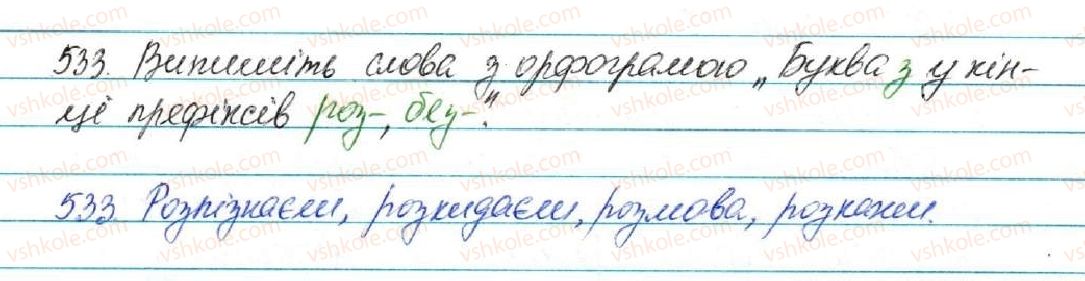 533. Випишіть слова з орфограмою „Буква з у кін-
це префіксів роз-, без-".
533. Розпізнаєш, розкидаєш, розмова, розкажи.